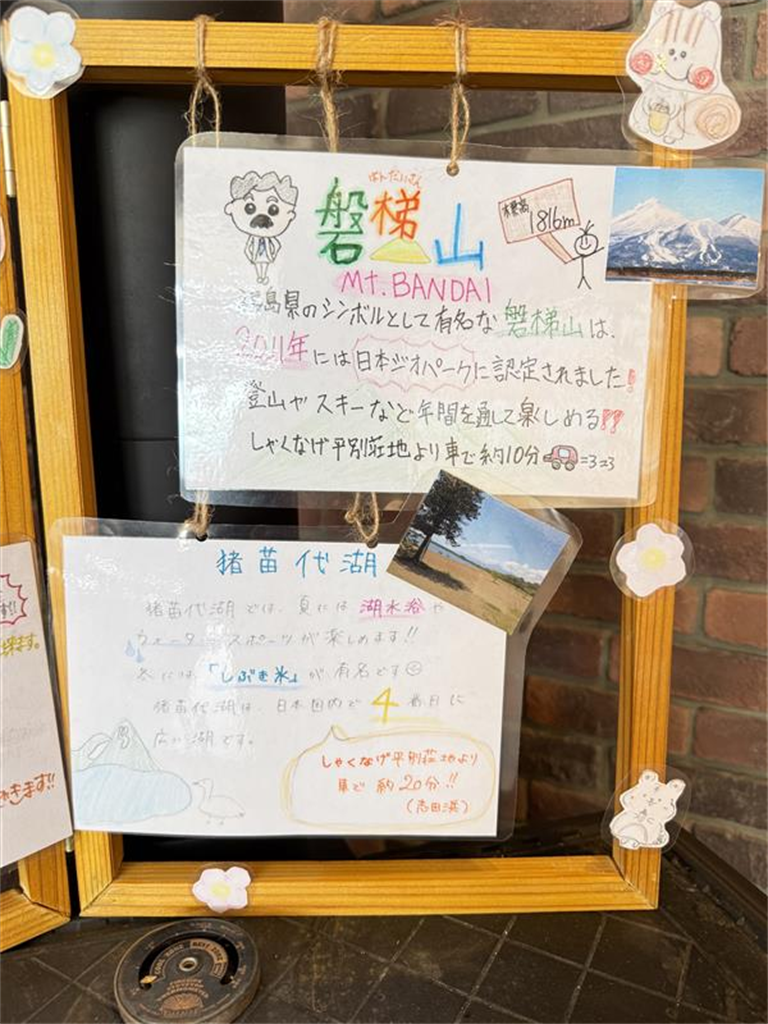 ばんだいさん
磐梯山
標高
1816m
Mt.BANDAI
福島県のシンボルとして有名な磐梯山は、
2011年には日本ジオパークに認定されました!
登山やスキーなど年間を通して楽しめる!!
しゃくなげ平別荘地より車で約10分
猪苗代湖
猪苗代湖では、夏には湖水浴や
ウォータースポーツが楽しめます!!
冬には「しぶき氷」が有名です
猪苗代湖は、日本国内で4番目に
広い湖です。
しゃくなげ平別荘地より
車で約20分!!
(志田浜)
きます!!